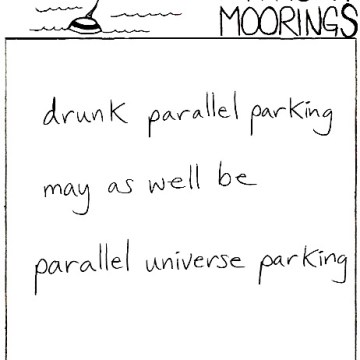 MOORINGS
drunk parallel parking
may as well be
parallel universe parking